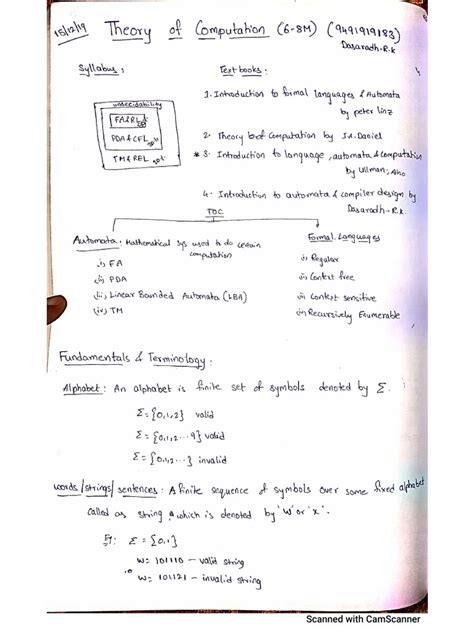 15/12/19 Theory of Computation (6-8M) (9491919183)
Dasaradh-R.K
Syllabus :
Text books :
undecidability
FA&RL
PDA&CFL
TM&REL
1. Introduction to formal languages & Automata
by peter linz
2. Theory of Computation by J.A. Daniel
* 3. Introduction to language, automata & Computation
by Ullman, Aho
4. Introduction to automata & compiler design by
Dasaradh-R.K.
TOC
Automata : Mathematical sys used to do certain
computation
i) FA
ii) PDA
iii) Linear Bounded Automata (LBA)
iv) TM
Formal Languages
i) Regular
ii) Context free
iii) Context sensitive
iv) Recursively Enumerable
Fundamentals & Terminology :
Alphabet : An alphabet is finite set of symbols denoted by Σ.
Σ = {0,1,2} valid
Σ = {0,1,2...9} valid
Σ = {0,1,2...} invalid
words/strings/sentences : A finite sequence of symbols over some fixed alphabet
called as string & which is denoted by 'W' or 'x'.
Σ = {0,1}
w = 101110 - valid string
w = 101121 - invalid string
Scanned with CamScanner